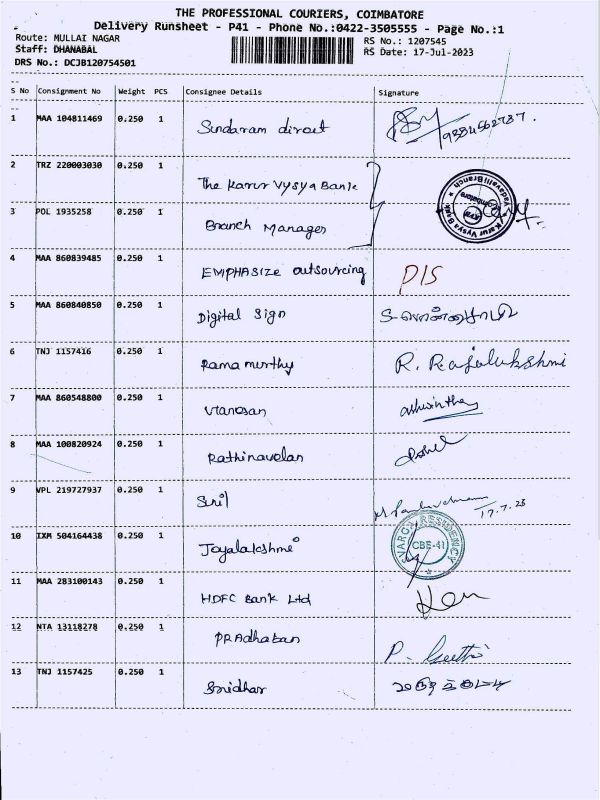 THE PROFESSIONAL COURIERS, COIMBATORE
Delivery Runsheet - P41 - Phone No.:0422-3505555 - Page No.:1
Route: MULLAI NAGAR RS No.: 1207545
Staff: DHANABAL RS Date: 17-Jul-2023
DRS No.: DCJB120754501
S No Consignment No Weight PCS Consignee Details Signature
1 MAA 104811469 0.250 1 Sundaram direct 9384562787.
2 TRZ 220003030 0.250 1 The Karur Vysya Bank
3 POL 1935258 0.250 1 Branch Manager
Karur Vysya Bank
Vadavalli Branch
Coimbatore
4 MAA 860839485 0.250 1 EMPHASIZE outsourcing DIS
5 MAA 860840850 0.250 1 Digital Sign
6 TNJ 1157416 0.250 1 Rama murthy R. Rajalukshmi
7 MAA 860548800 0.250 1 ashwintha
8 MAA 100820924 0.250 1 Rathinavelan
9 VPL 219727937 0.250 1 17.7.23
10 IXM 504164438 0.250 1 RESIDENCY CBE-41
11 MAA 283100143 0.250 1 HDFC Bank Ltd
12 NTA 13118278 0.250 1 P. Geethi
13 TNJ 1157425 0.250 1